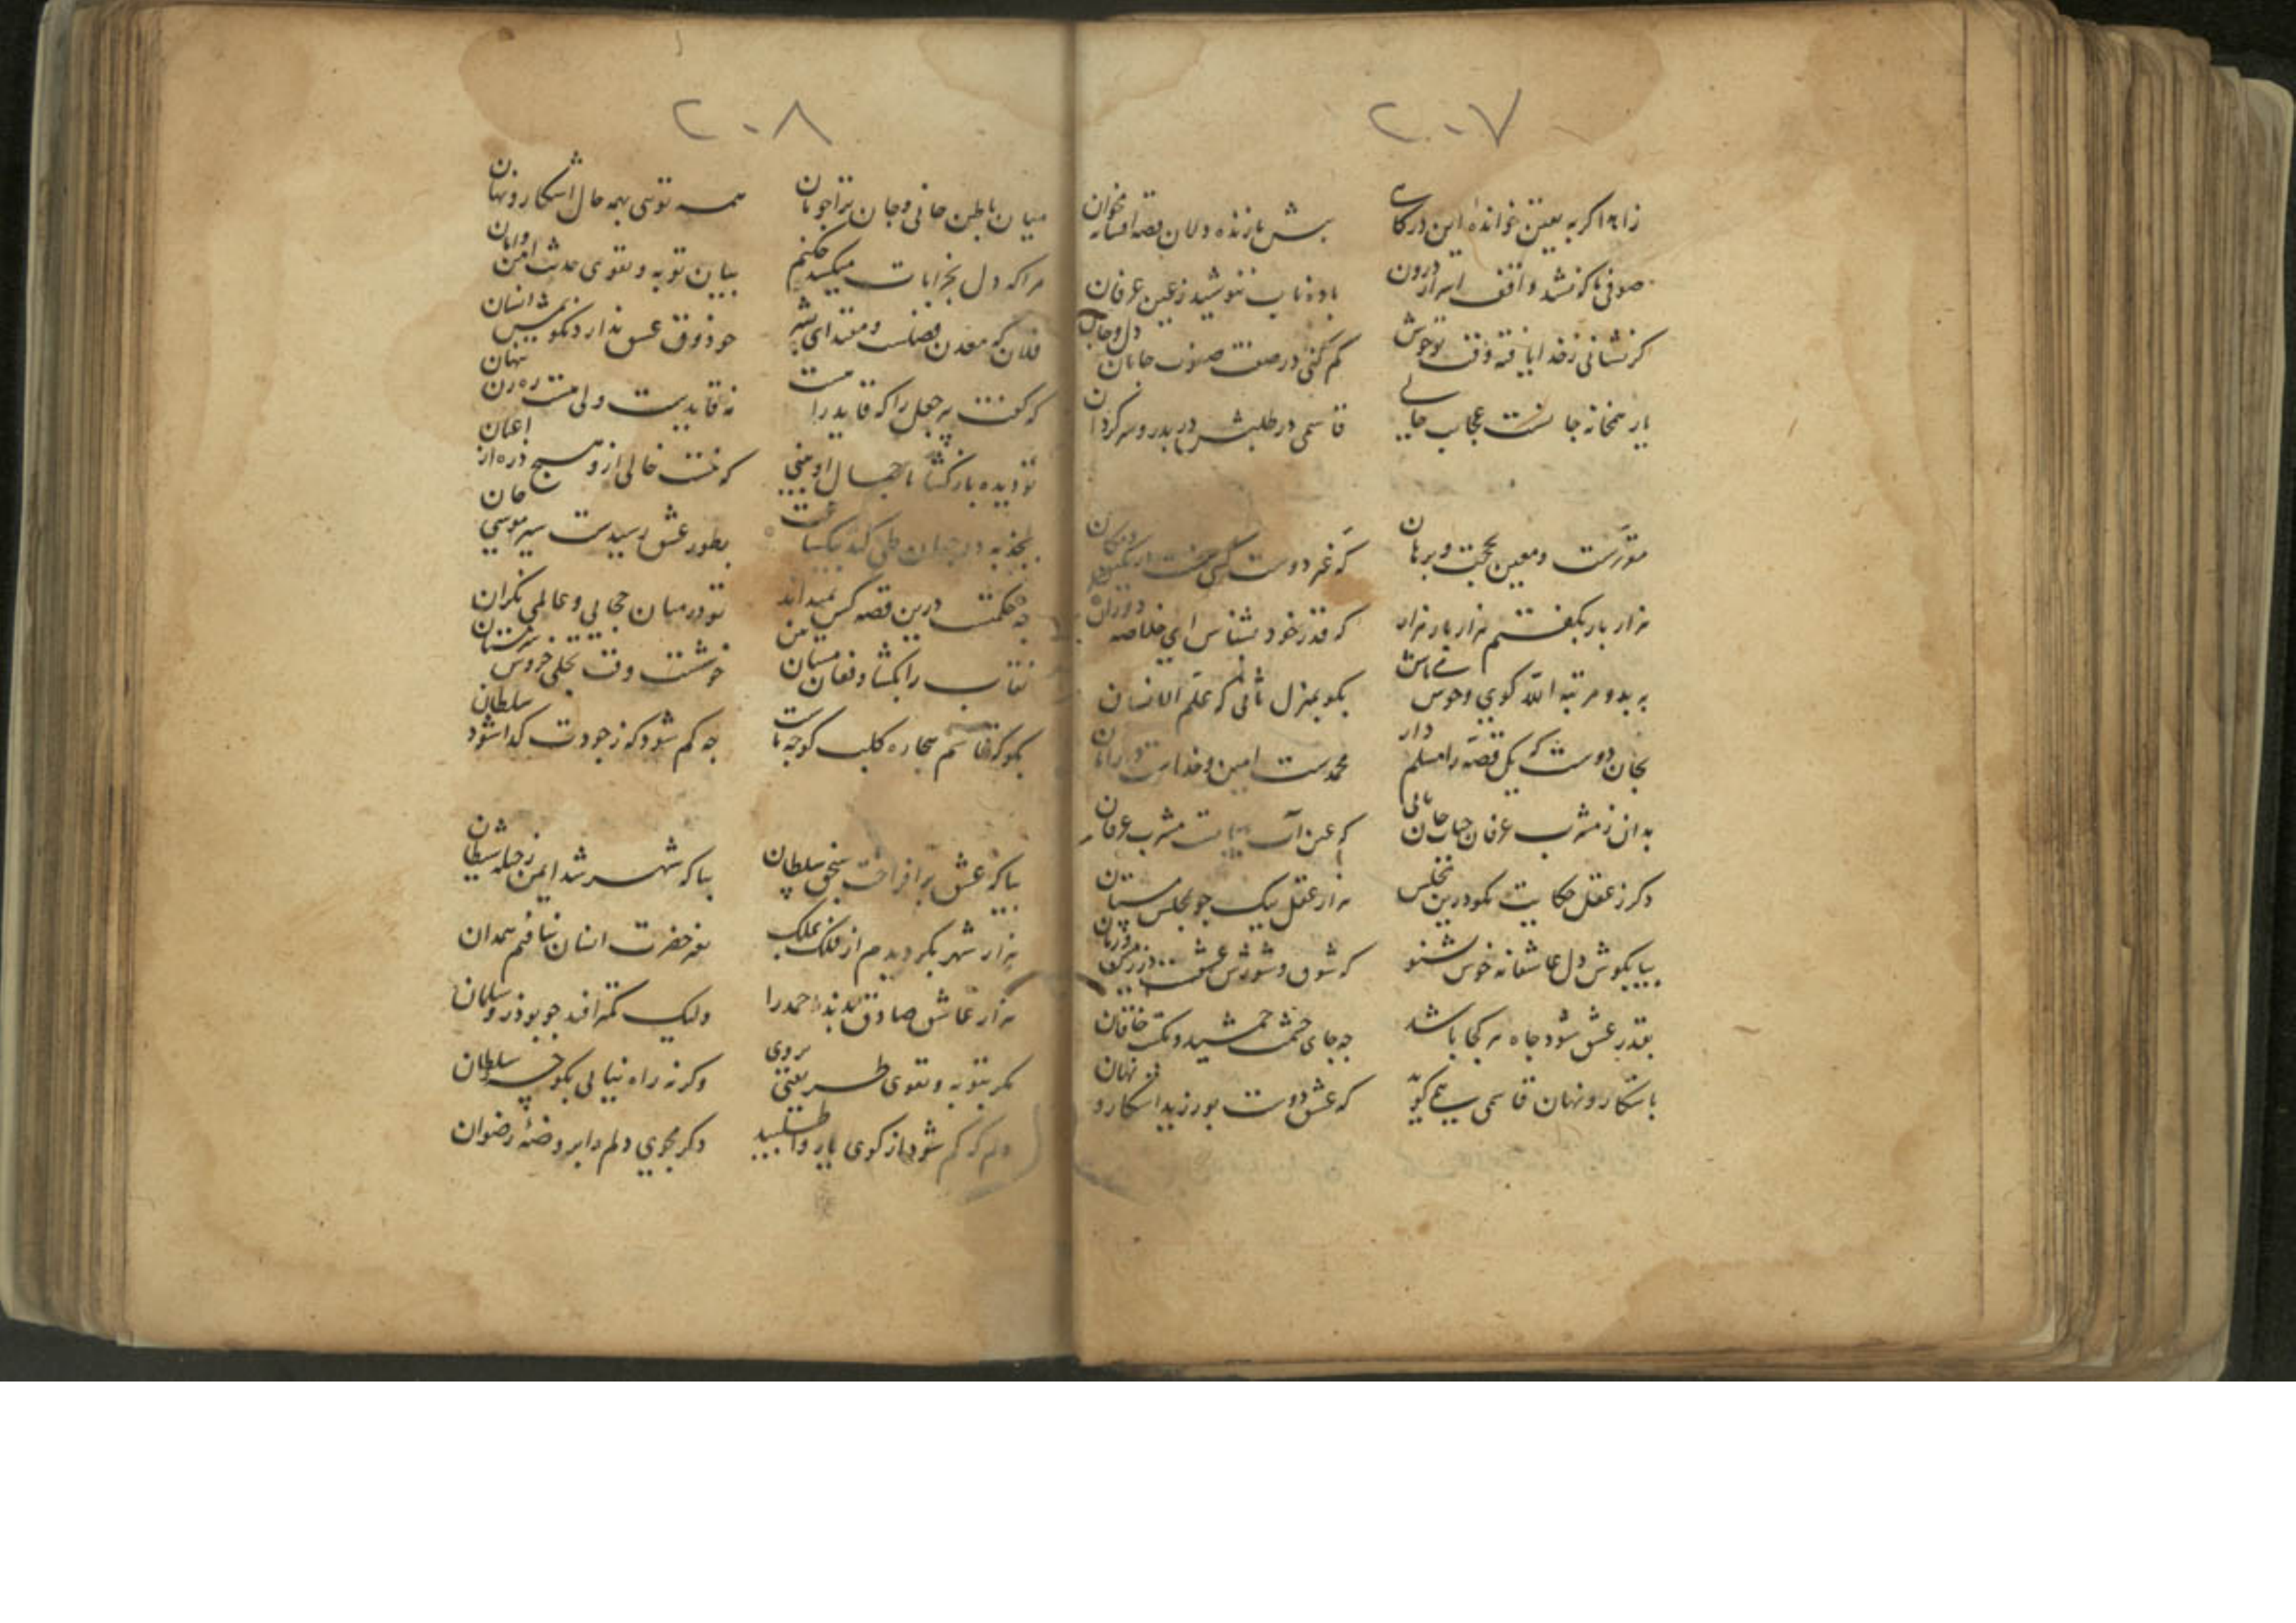 ۲۰۷
زاهدا گر به یقین خوانده این درگاهی
پیش ما زنده دلان قصه و افسانه مخوان
صوفی ما که نشد واقف اسرار درون
باده ناب ننوشید ز عین عرفان
گر نشانی ز خدا یافته وقت تو خوش
گم کنی در صفت صورت جانان دل و جان
یار همخانه جانست عجایب حالی
قاسمی در طلبش در بدر و سرگردان
مقررست و معین بحجت و برهان
که غیر دوست کسی نیست در مکین و مکان
هزار بار بگفتم هزار بار هزار
که قدر خود بشناس ای خلاصه دوران
به بدو مرتبه الله کوی و خوش می باش
بکو بمنزل ثانی که علم الانسان
بجان دوست که یک قصه را مسلم دار
محمدست امین و خداست
بدان ز مشرب عرفان حیات جان یابی
که عین آب حیاتست مشرب عرفان
دکر ز عقل حکایت مکو درین مجلس
هزار عقل بیک جو بمجلس مستان
بیا بکوش دل عاشقانه خوش بشنو
که شوق و شورش عشقست
بقدر عشق شود جاه هر کجا باشد
چه جای حشمت جمشید و تکت خاقان
باشکار و نهان قاسمی همی کوید
که عشق دوست بورزید اشکار و نهان
۲۰۸
میان باطن جانی و جان ترا جویان
همه توئی بهمه حال اشکار و نهان
مرا که دل بخرابات میکشد چکنم
بیان توبه و تقوی حدیث امن و امان
فلان که معدن فضلست و مقتدای بشر
چو ذوق عشق ندارد مکویمش انسان
که گفت پر جهل را که قایدرا
نه قایدست ولی هست ره زن پنهان
تو دیده باز کشا تا جمال او بینی
که نیست خالی ازو هیچ ذره از اعیان
بجذبه دو جهان طی کند بیکساعت
بطور عشق رسیدست سیر موسی جان
چه حکمتست درین قصه کس نمیداند
تو در میان حجابی و عالمی نکران
نقاب را بکشا و فغان مستان بین
خوشست وقت تجلی خروش سرمستان
بکو که قاسم بیچاره کلب کوچه ماست
چه کم شود که ز جودت کدا شود سلطان
بیا که عشق برافراخت سنجق سلطان
بیا که شهر شد ایمن ز حیله شیطان
هزار شهر بکردیدم از فلک بملک
بغیر حضرت انسان نیافتم همدان
هزار عاشق صادق احمد را
ولیک کمتر افتد چو بوذر و سلمان
مکر بتوبه و تقوی طریق روی
وکرنه راه نیابی بکوچه سلطان
دلم که کم شود از کوی یار واطلبید
دکر مجوی دلم را بروضه رضوان